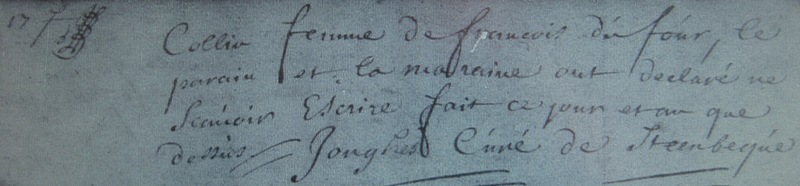 Collin femme de francois du four, le
parain et la maraine ont declaré ne
Scauoir Escrire fait ce jour et an que
dessus Jonghes Curé de Steenbeque